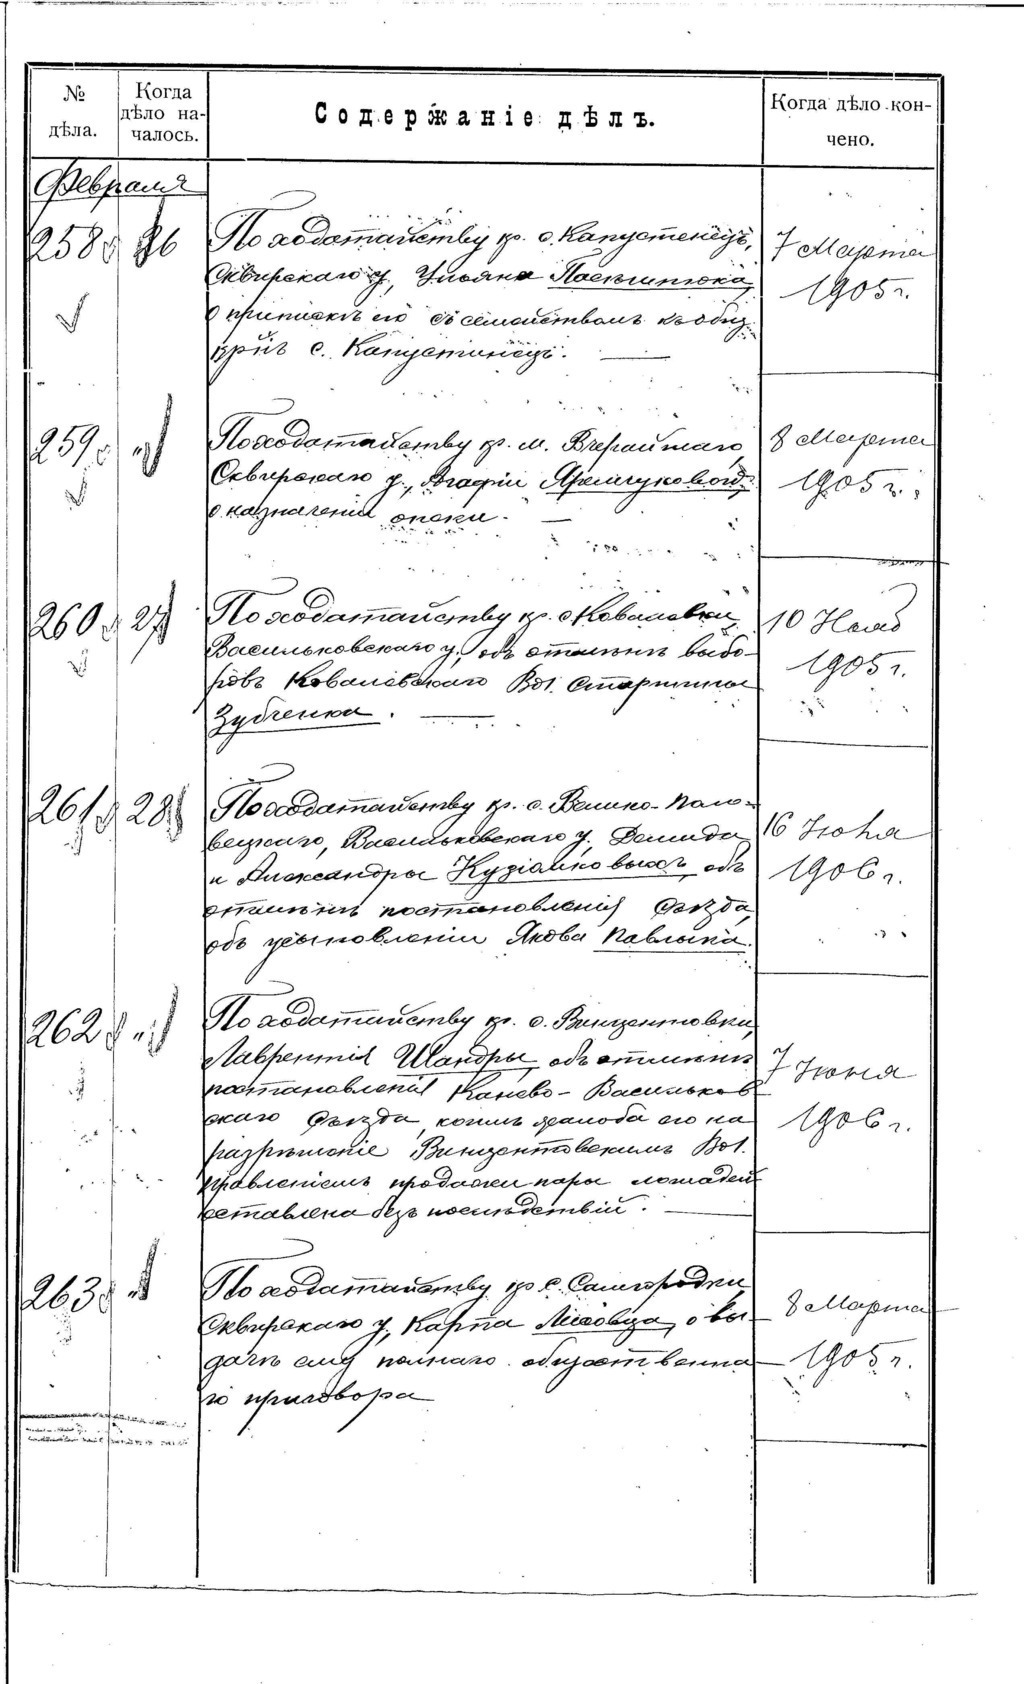 № дѣла.
Когда дѣло на-
чалось.
Содержаніе дѣлъ.
Когда дѣло кон-
чено.
Февраля
258 26
По ходатайству кр. с. Капустенецъ,
Сквирскаго у, Ульяна
о припискѣ его съ семействомъ къ общ.
с. Капустинецъ.
7 Марта
1905 г.
259 "
По ходатайству кр. м. Вчерайшаго
Сквирскаго у., Агафіи Яремчуковой,
о назначеніи опеки.
8 Марта
1905 г.
260 27
По ходатайству кр. с. Ковалевки,
Васильковскаго у, объ отмѣнѣ выбо-
ровъ Ковалевскаго Вол. Старшины
Зубченка.
10 Нояб
1905 г.
261 28
По ходатайству кр. с. Велико-Поло-
вецкаго, Васильковскаго у, Демида
и Александры объ
отмѣнѣ постановленія Съѣзда,
объ усыновленіи Якова Павлыка.
16 Іюня
1906 г.
262 "
По ходатайству кр. с. Винцентовки,
Лаврентія Шандры, объ отмѣнѣ
постановленія Канево-Васильков
скаго Съѣзда, коимъ жалоба его на
разрѣшеніе Винцентовскимъ Вол.
Правленіемъ продажи пары лошадей
оставлена безъ послѣдствій.
7 Іюня
1906 г.
263 "
По ходатайству кр с. Самгородка,
Сквирскаго у, Карпа Лисовца, о вы-
дачѣ ему полнаго общественна-
го приговора
8 Марта
1905 г.